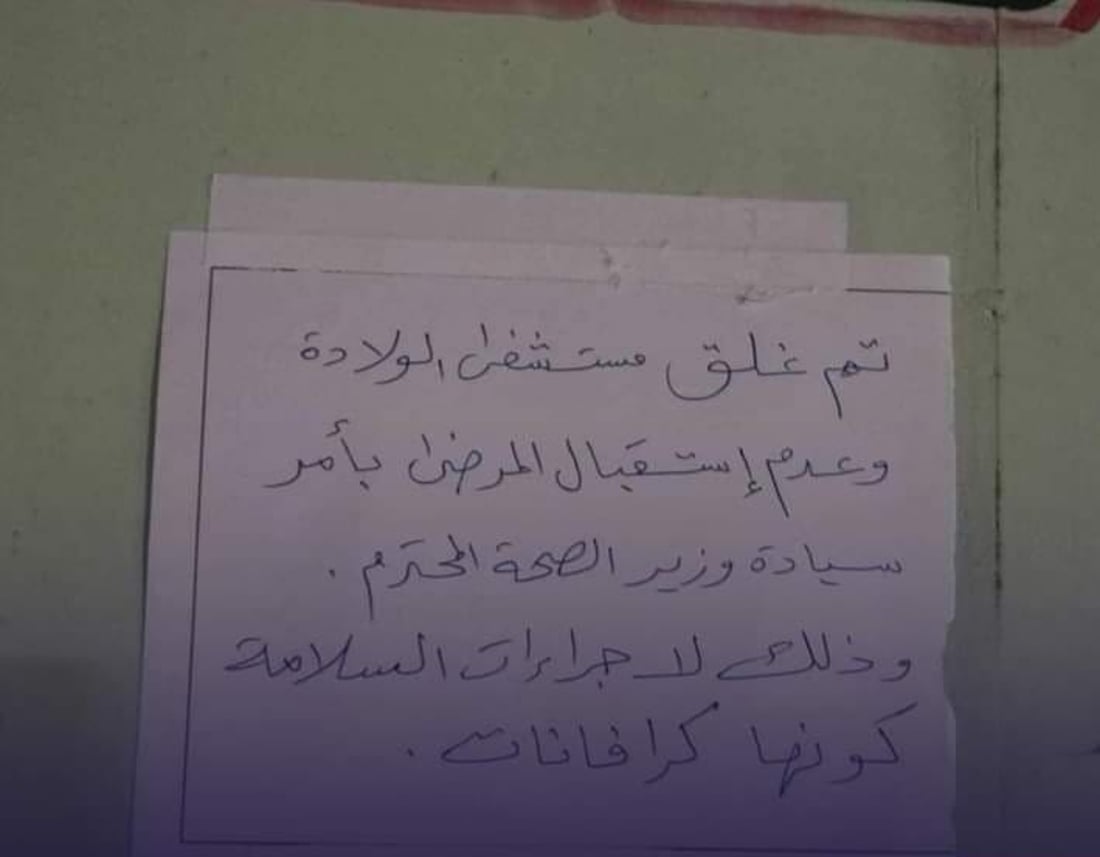 تم غلق مستشفى الولادة
وعدم إستقبال المرضى بأمر
سيادة وزير الصحة المحترم .
وذلك لاجراءات السلامة
كونها كرافانات .